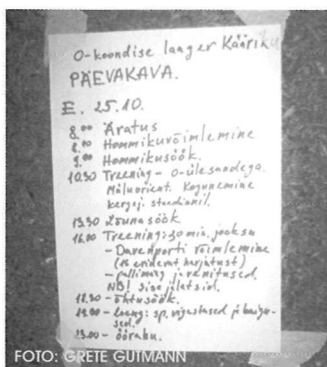 O-koondise laager Kääriku
PÄEVAKAVA.
E. 25.10.
8.00 Äratus
8.10 Hommikuvõimlemine
9.00 Hommikusöök.
10.30 Treening - O-ülesandega.
Mäluorient. Kogunemine
kergej. staadionil.
13.30 Lõunasöök
16.00 Treening: 30 min. jooksu
- Davenporti võimlemine
(16 erinevat harjutust)
- pallimäng ja venitused.
NB! Sise jalatsid.
18.30 - õhtusöök.
19.00 - Loeng: sp. vigastused ja haigu-
sed.
23.00 - öörahu.
FOTO: GRETE GUTMANN